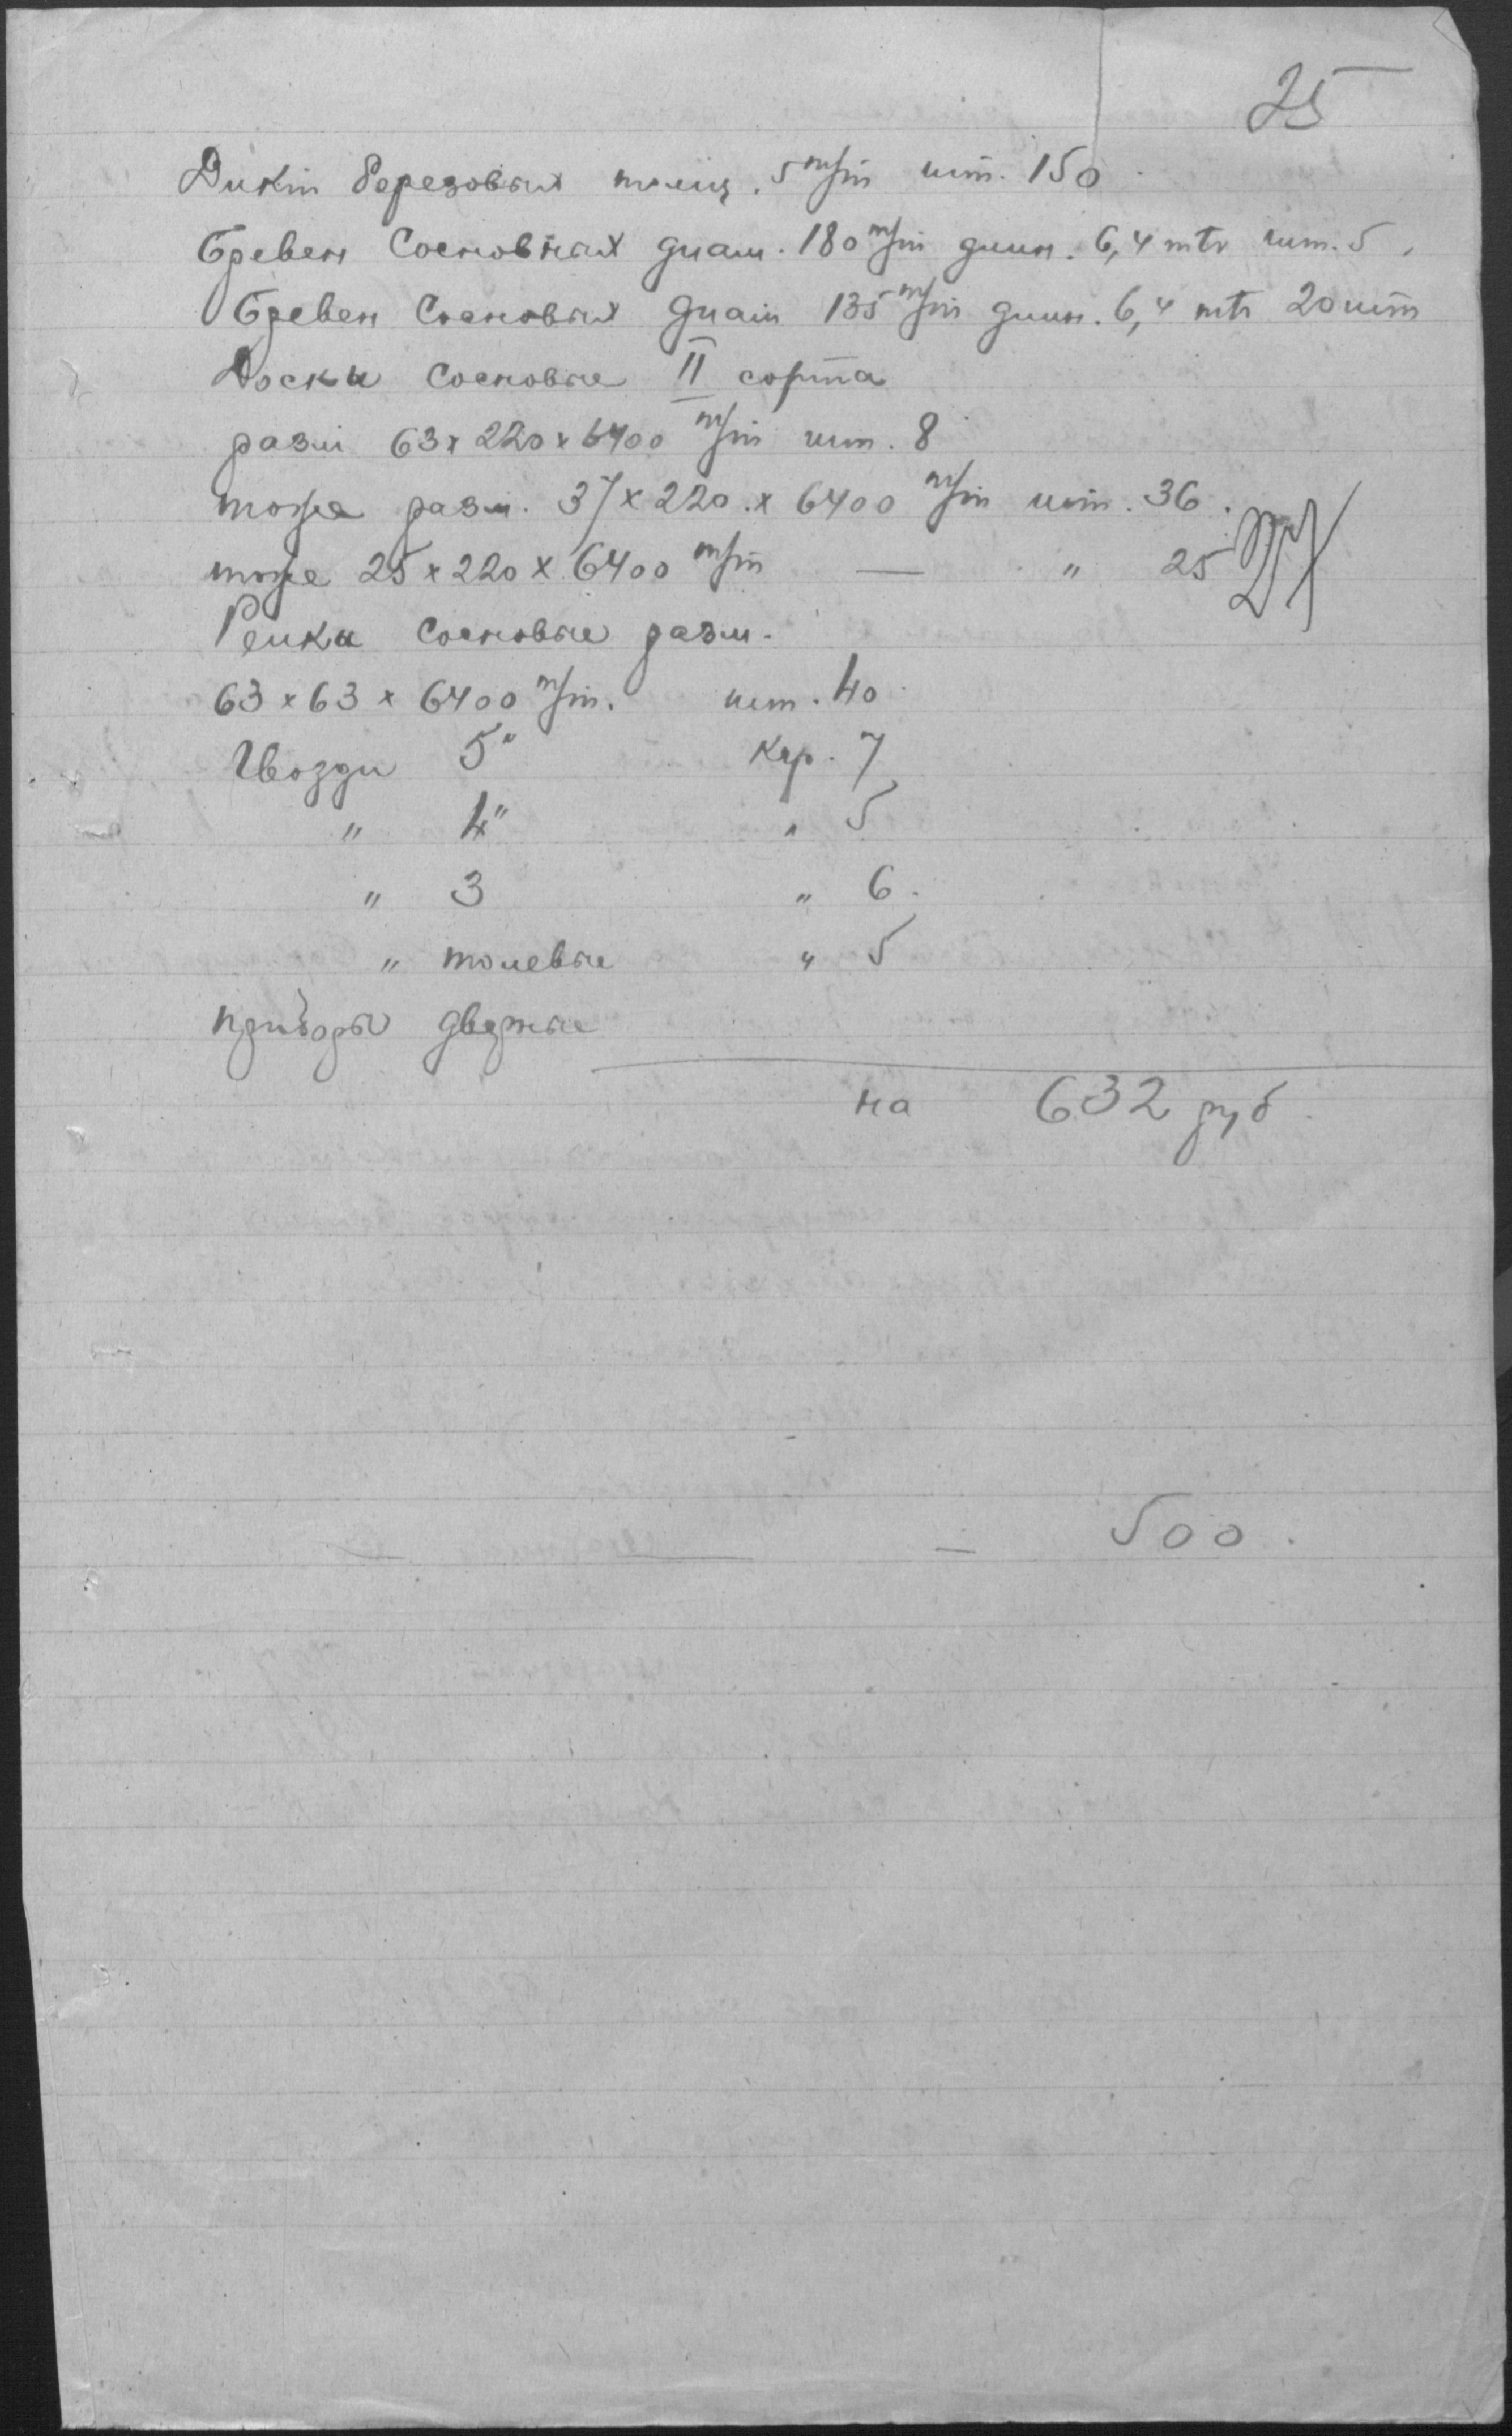 25
Дикт березовых толщ. 5 m/m шт. 150
Бревен Сосновных диам. 180 m/m длин. 6,4 mtr шт. 5.
Бревен Сосновых диам 135 m/m длин. 6,4 mtr 20 шт
Доски сосновые II сорта
разм 63 x 220 x 6400 m/m шт. 8
тоже разм. 37 x 220 x 6400 m/m шт. 36.
тоже 25 x 220 x 6400 m/m — " 25
Рейки сосновые разм.
63 x 63 x 6400 m/m. шт. 40
Гвозди 5" кгр. 7
" 4" " 5
" 3 " 6.
" толевые " 5
приборы дверные
на 632 руб.
— — — 500.